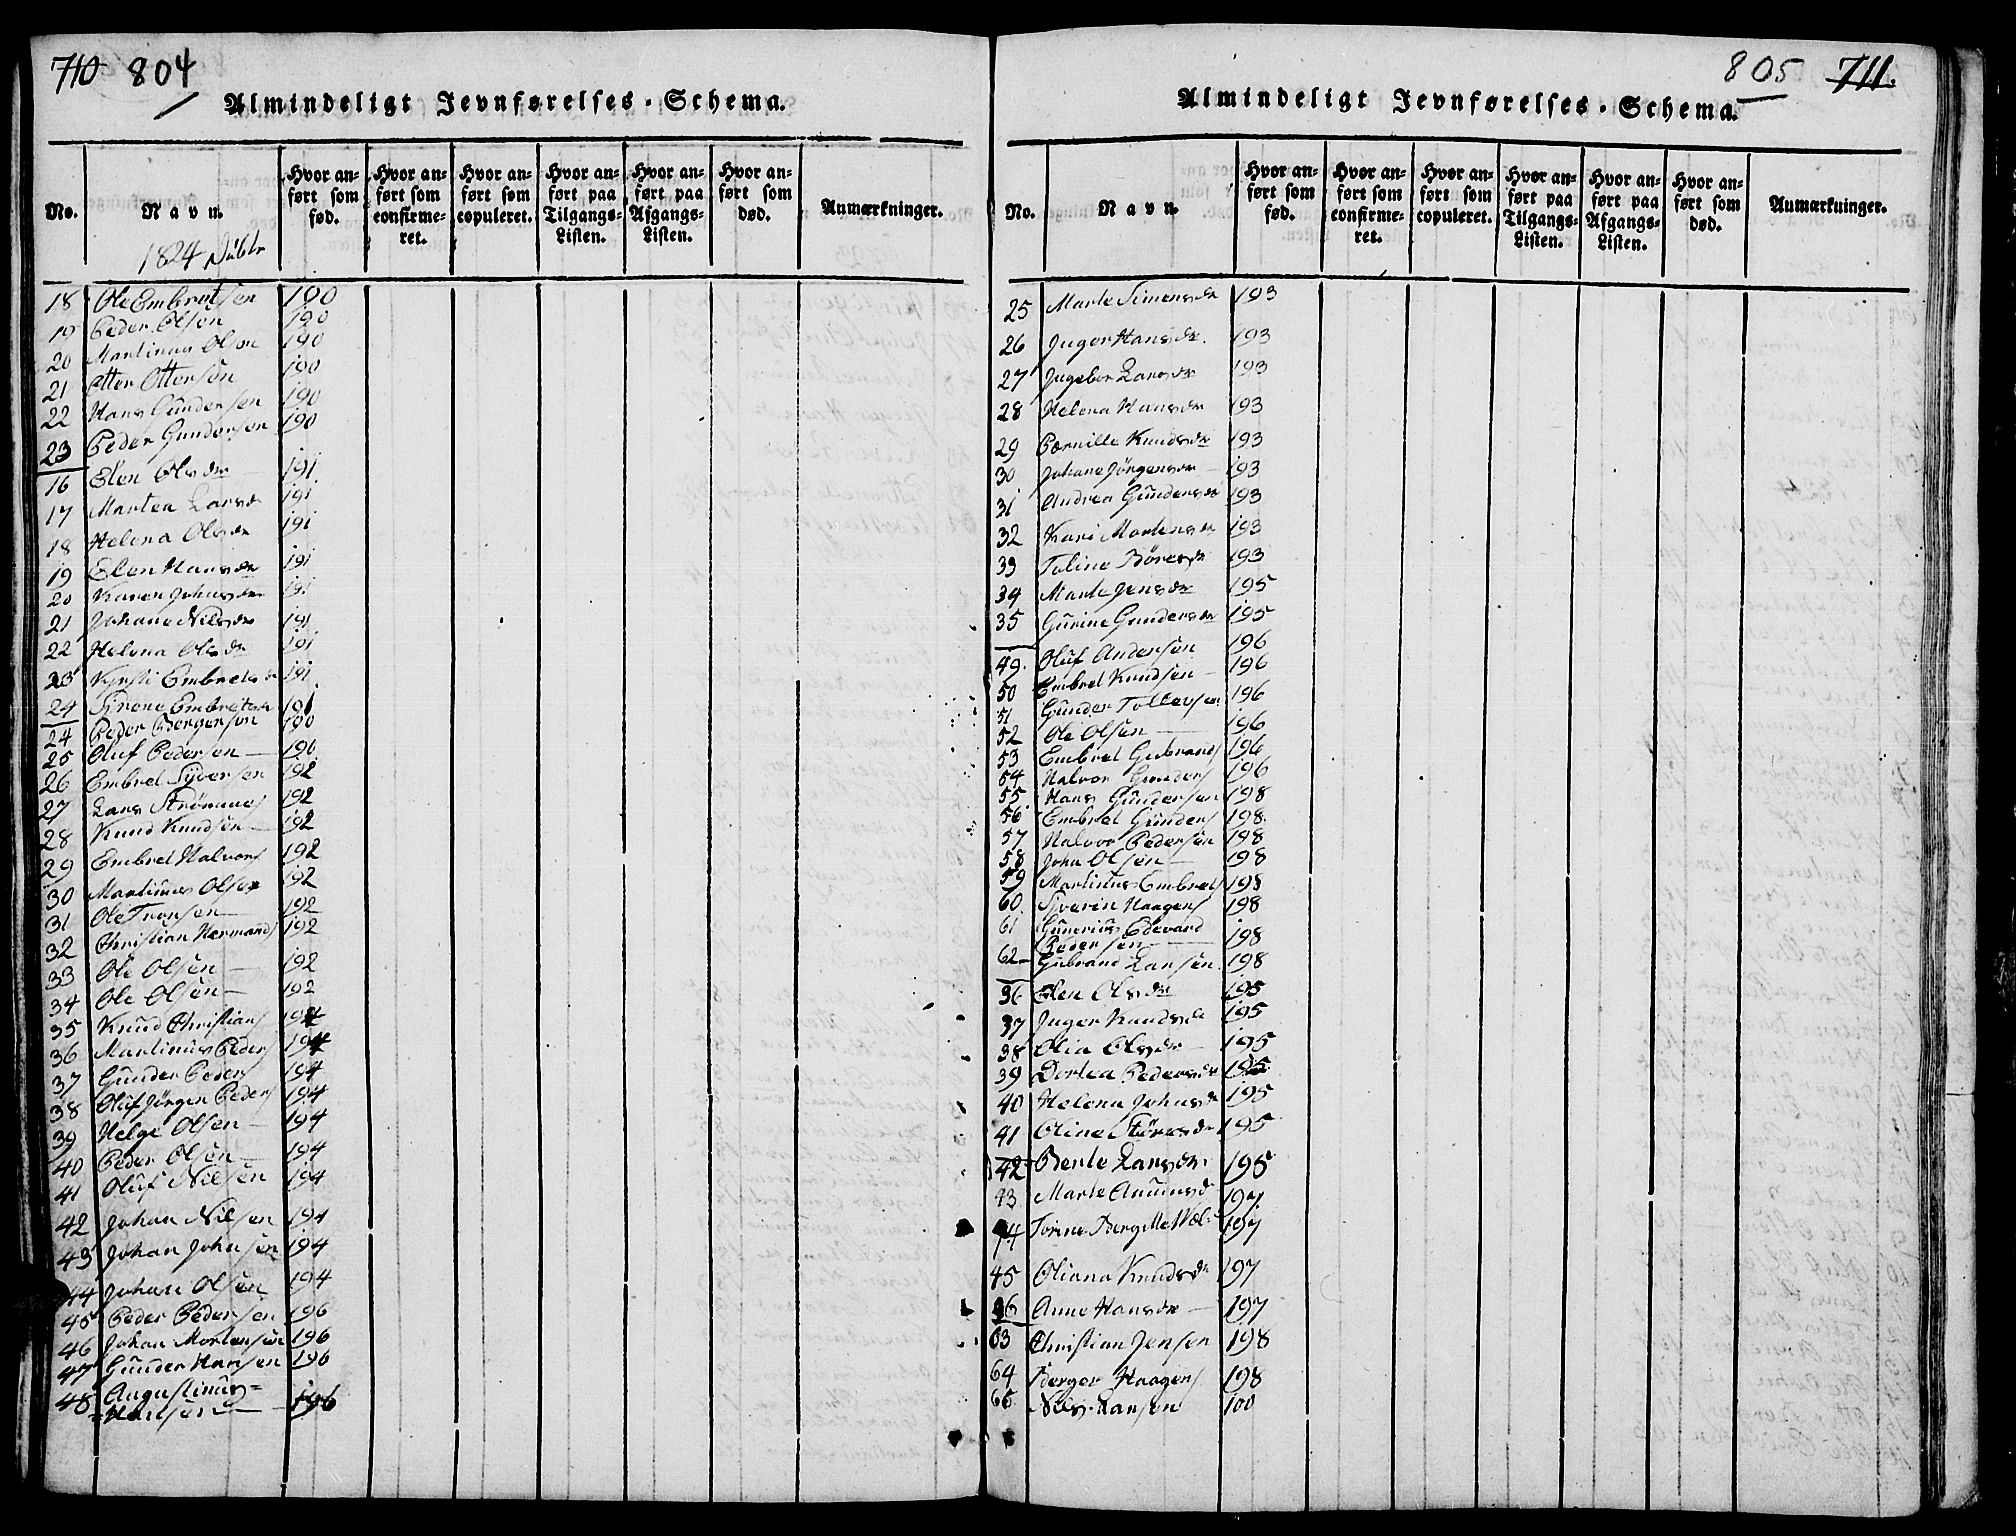 710 804
Almindeligt Jevnførelses-Schema.
No.
Navn.
Hvor anført som fød.
Hvor anført som confirmeret.
Hvor anført som copuleret.
Hvor anført paa Tilgangs-Listen.
Hvor anført paa Afgangs-Listen.
Hvor anført som død.
Anmærkninger.
1824
18 Ole Embretsen 190
19 Peder Olsen 190
20 Martinus Olsen 190
21 Otter Ottersen 190
22 Hans Gundersen 190
23 Peder Gundersen 190
16 Elen Olsdr 191
17 Martea Larsdr 191
18 Helena Olsdr 191
19 Elen Hansdr 191
20 Karen Johnsdr 191
21 Johane Nilsdr 191
22 Helena Olsdr 191
23 Kirsti Embretsdr 191
24 Sirene Embretsdr 191
24 Peder Bergerson 190
25 Oluf Pedersen 190
26 Embret Syversen 192
27 Lars 192
28 Knud Knudsen 192
29 Embret Halvors 192
30 Martinus Olsen 192
31 Ole Tronsen 192
32 Christian Hermands 192
33 Ole Olsen 192
34 Ole Olsen 192
35 Knud Christians 194
36 Martinus Peders 194
37 Gunder Peders 194
38 Oluf Jørgen Peders 194
39 Helge Olsen 194
40 Peder Olsen 194
41 Oluf Nilsen 194
42 Johan Nilsen 194
43 Johan Johnsen 194
44 Johan Olsen 194
45 Peder Pedersen 196
46 Johan Mortensen 196
47 Gunder Hansen 196
48 Augustinus=
=Hansen 196
805 711.
Almindeligt Jevnførelses-Schema.
No.
Navn.
Hvor anført som fød.
Hvor anført som confirmeret.
Hvor anført som copuleret.
Hvor anført paa Tilgangs-Listen.
Hvor anført paa Afgangs-Listen.
Hvor anført som død.
Anmærkninger.
25 Marte Simensdr 193
26 Inger Hansdr. 193
27 Ingebor Larsdr 193
28 Helena Hansdr 193
29 Pernille Knudsdr 193
30 Johane Jörgensdr 193
31 Andrea Gundersdr 193
32 Kari Mortensdr 193
33 Toline 193
34 Marte Jensdr 195
35 Gurine Gundersdr 195
49. Oluf Andersen 196
50 Embret Knudsen 196
51 Gunder Tollevsen 196
52 Ole Olsen 196
53 Embret Gubrands 196
54 Halvor Gunders 196
55 Hans Gundersen 198
56 Embret Gunders 198.
57 Halvor Pedersen 198
58 John Olsen 198
59 Martinus Embrets 198
60. Siverin Haagens 198
61 Gunerius Edevard
Pedersen 198
62 Gubrand Larsen 198
36 Elen Olsdr 195
37 Inger Knudsdr 195
38 Olia Olsdr 195
39 Dortea Pedersdr 195
40 Helena Johnsdr 195
41 Oline 195
42 Berte Larsdr 195
43 Marte 197
44 Torine 197
45 Oliana Knudsdr 197
46 Anne Hansdr 197
63 Christian Jensen 198
64 Berger Haagens 198
65 Nils Larsen 100